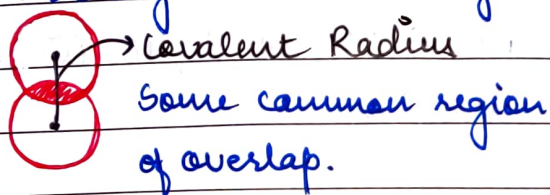 Covalent Radius
Some common region
of overlap.